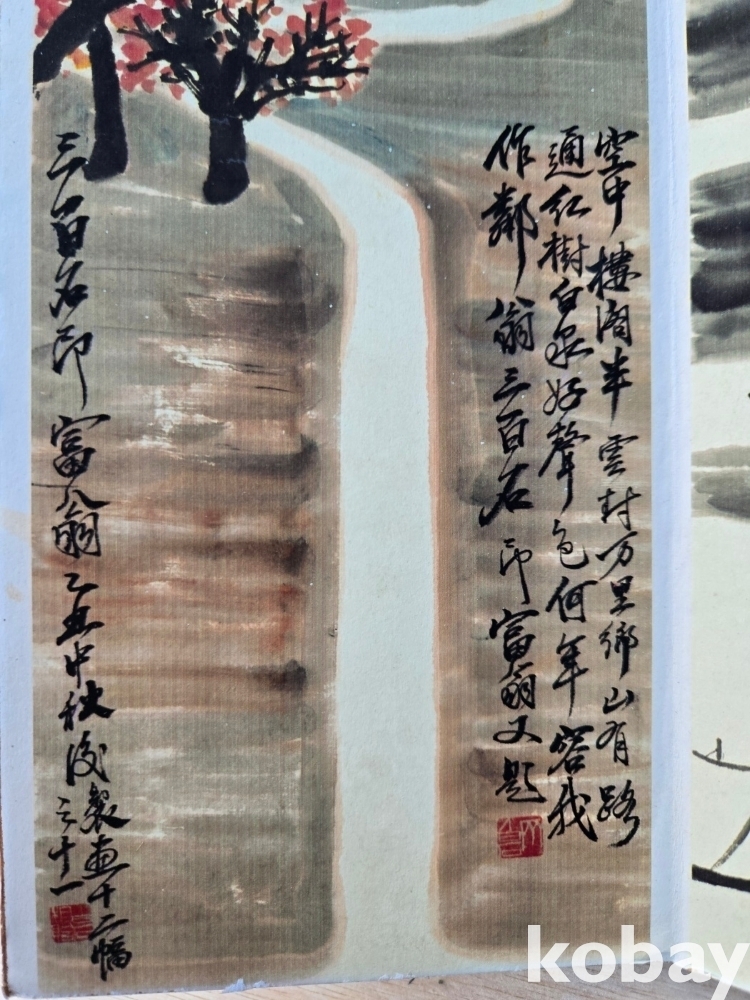 空中樓閣半雲封万里鄉山有路
通红樹白泉好聲色何年容我
作鄰翁三百石印富翁又題
三百石印富翁乙丑中秋後製畫十二幅
之十一
kobay